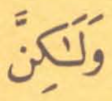 وَلَٰكِنَّ